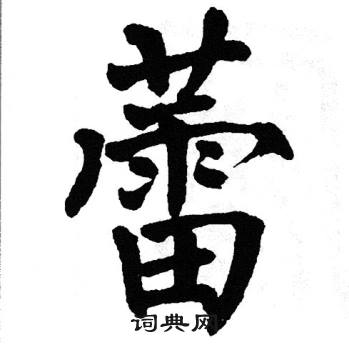 蕾
词典网